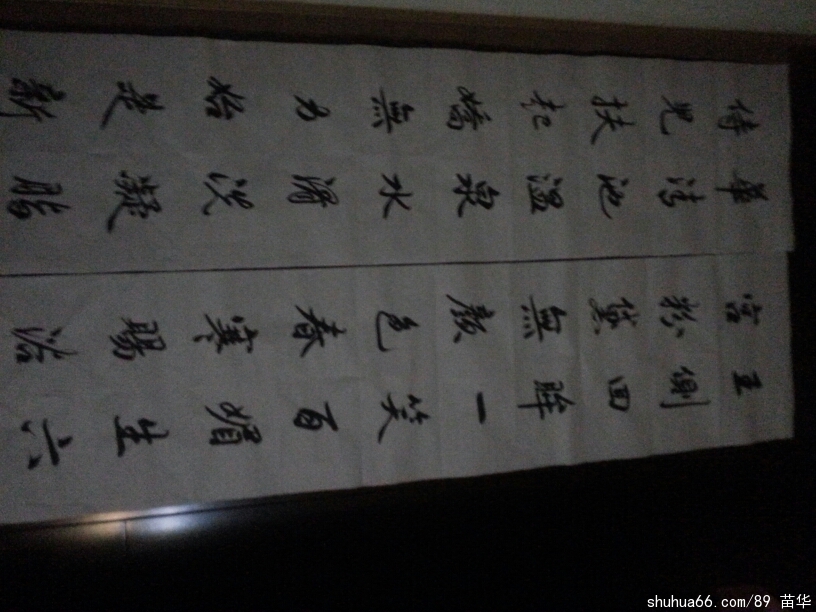 王側回眸一笑百媚生六
宮粉黛無顏色春寒賜浴
華清池溫泉水滑洗凝脂
侍兒扶起嬌無力始是新
shuhua66.com/89 苗华